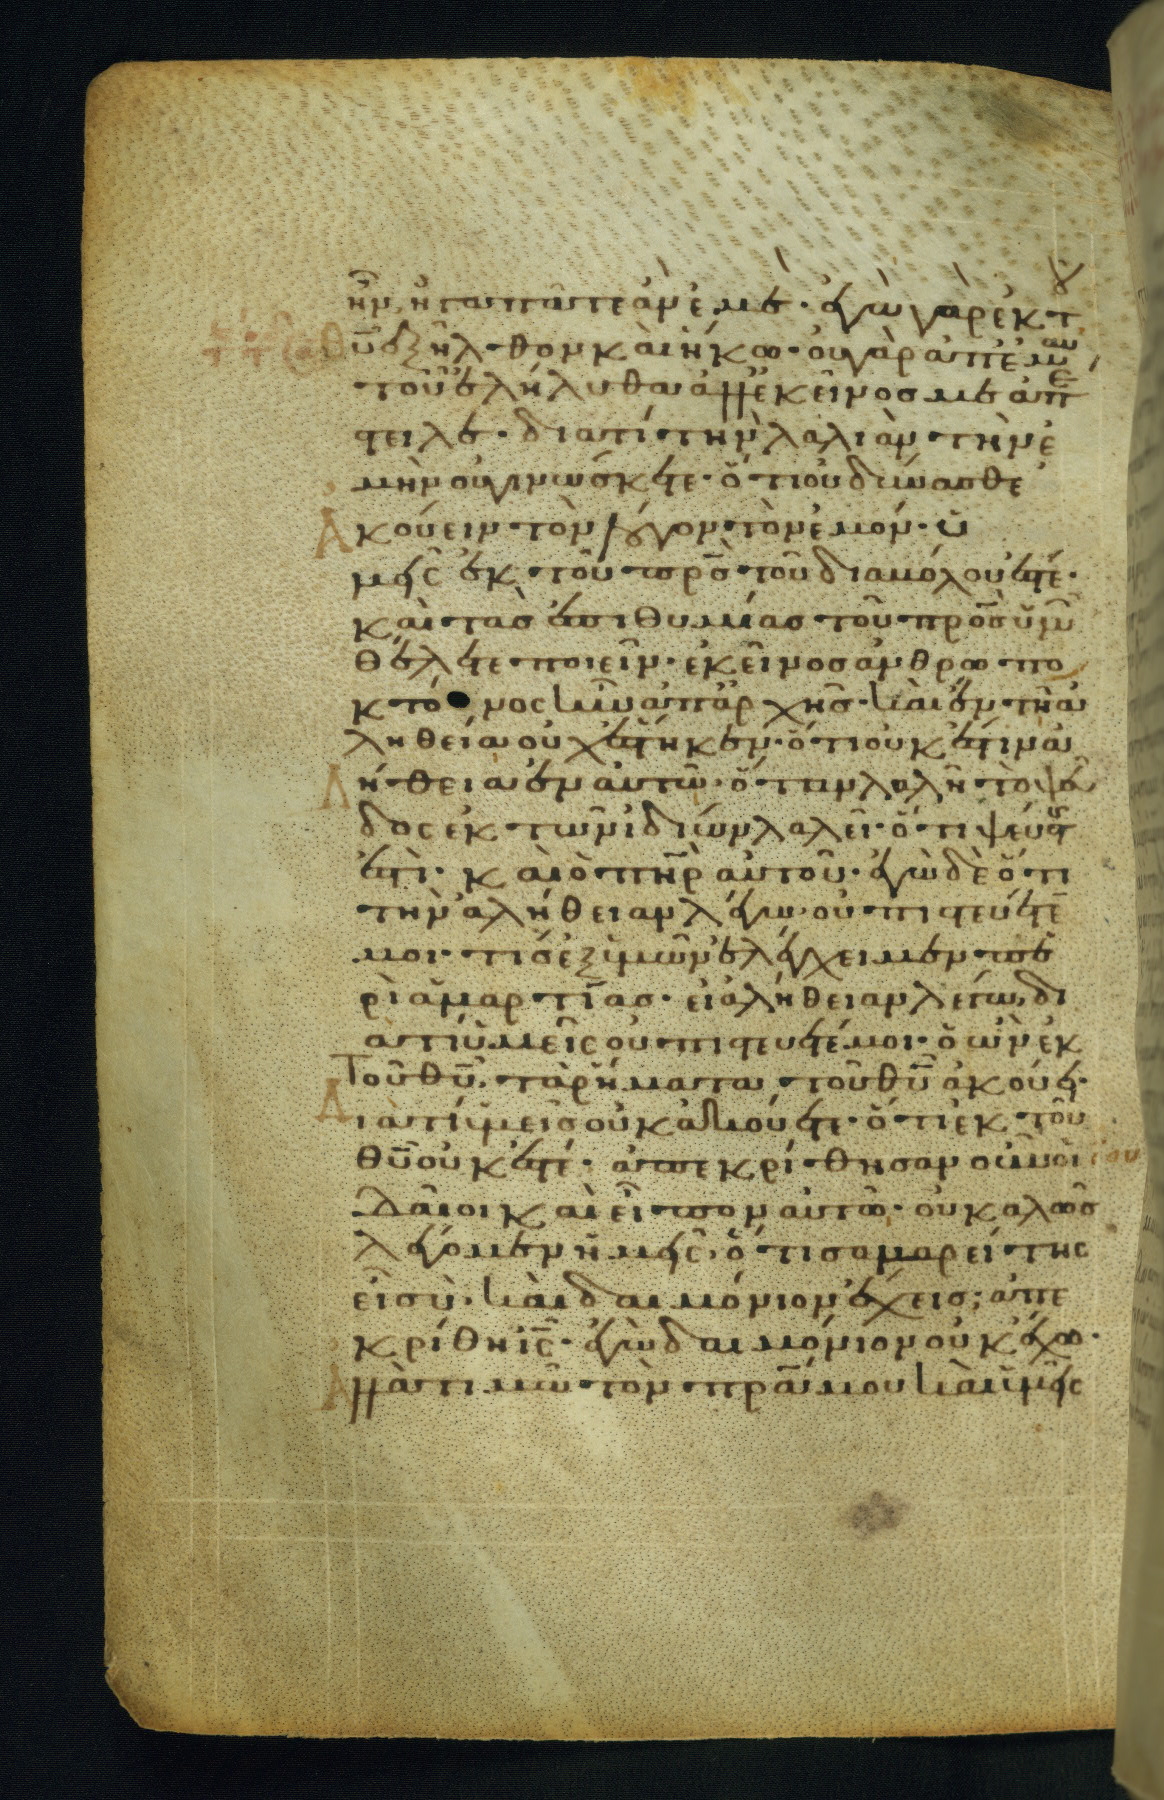 ἦν, ἠγαπᾶτε ἂν ἐμέ· ἐγὼ γὰρ ἐκ τοῦ
θῡ ἐξῆλθον καὶ ἥκω· οὐ γὰρ ἀπ' ἐμαυ
τοῦ ἐλήλυθα· ἀλλ' ἐκεῖνος με ἀπέ
στειλε· διατί τὴν λαλιὰν τὴν ἐ
μὴν οὐ γινώσκετε· ὅτι οὐ δύνασθε
ἀκούειν τὸν λόγον τὸν ἐμόν· ὑ
μεῖς ἐκ τοῦ πρ̅ς τοῦ διαβόλου ἐστέ·
καὶ τὰς ἐπιθυμίας τοῦ πρ̅ς ὑμῶν
θέλετε ποιεῖν· ἐκεῖνος ἀνθρωπο
κτόνος ἦν ἀπ' ἀρχῆς· καὶ ἐν τῇ ἀ
ληθείᾳ οὐχ ἕστηκεν· ὅτι οὐκ ἔστιν ἀ
λήθεια ἐν αὐτῷ· ὅταν λαλῇ τὸ ψεῦ
δος ἐκ τῶν ἰδίων λαλεῖ· ὅτι ψεύστης
ἐστὶ· καὶ ὁ πη̅ρ αὐτοῦ· ἐγὼ δὲ ὅτι
τὴν ἀλήθειαν λέγω· οὐ πιστεύετέ
μοι· τίς ἐξ ὑμῶν ἐλέγχει με περὶ
ἁμαρτίας· εἰ ἀλήθειαν λέγω, δι
ατί ὑμεῖς οὐ πιστεύετέ μοι· ὁ ὢν ἐκ
τοῦ θῡ· τὰ ῥήματα τοῦ θῡ ἀκούει·
διατί ὑμεῖς οὐκ ἀκούετε· ὅτι ἐκ τοῦ
θῡ οὐκ ἐστέ· ἀπεκρίθησαν οὖν οἱ ἰου
δαῖοι καὶ εἶπον αὐτῷ· οὐ καλῶς
λέγομεν ἡμεῖς· ὅτι σαμαρείτης
εἶ σύ· καὶ δαιμόνιον ἔχεις; ἀπε
κρίθη ἰς̅· ἐγὼ δαιμόνιον οὐκ ἔχω·
ἀλλὰ τιμῶ τὸν πρ̅α μου καὶ ὑμεῖς